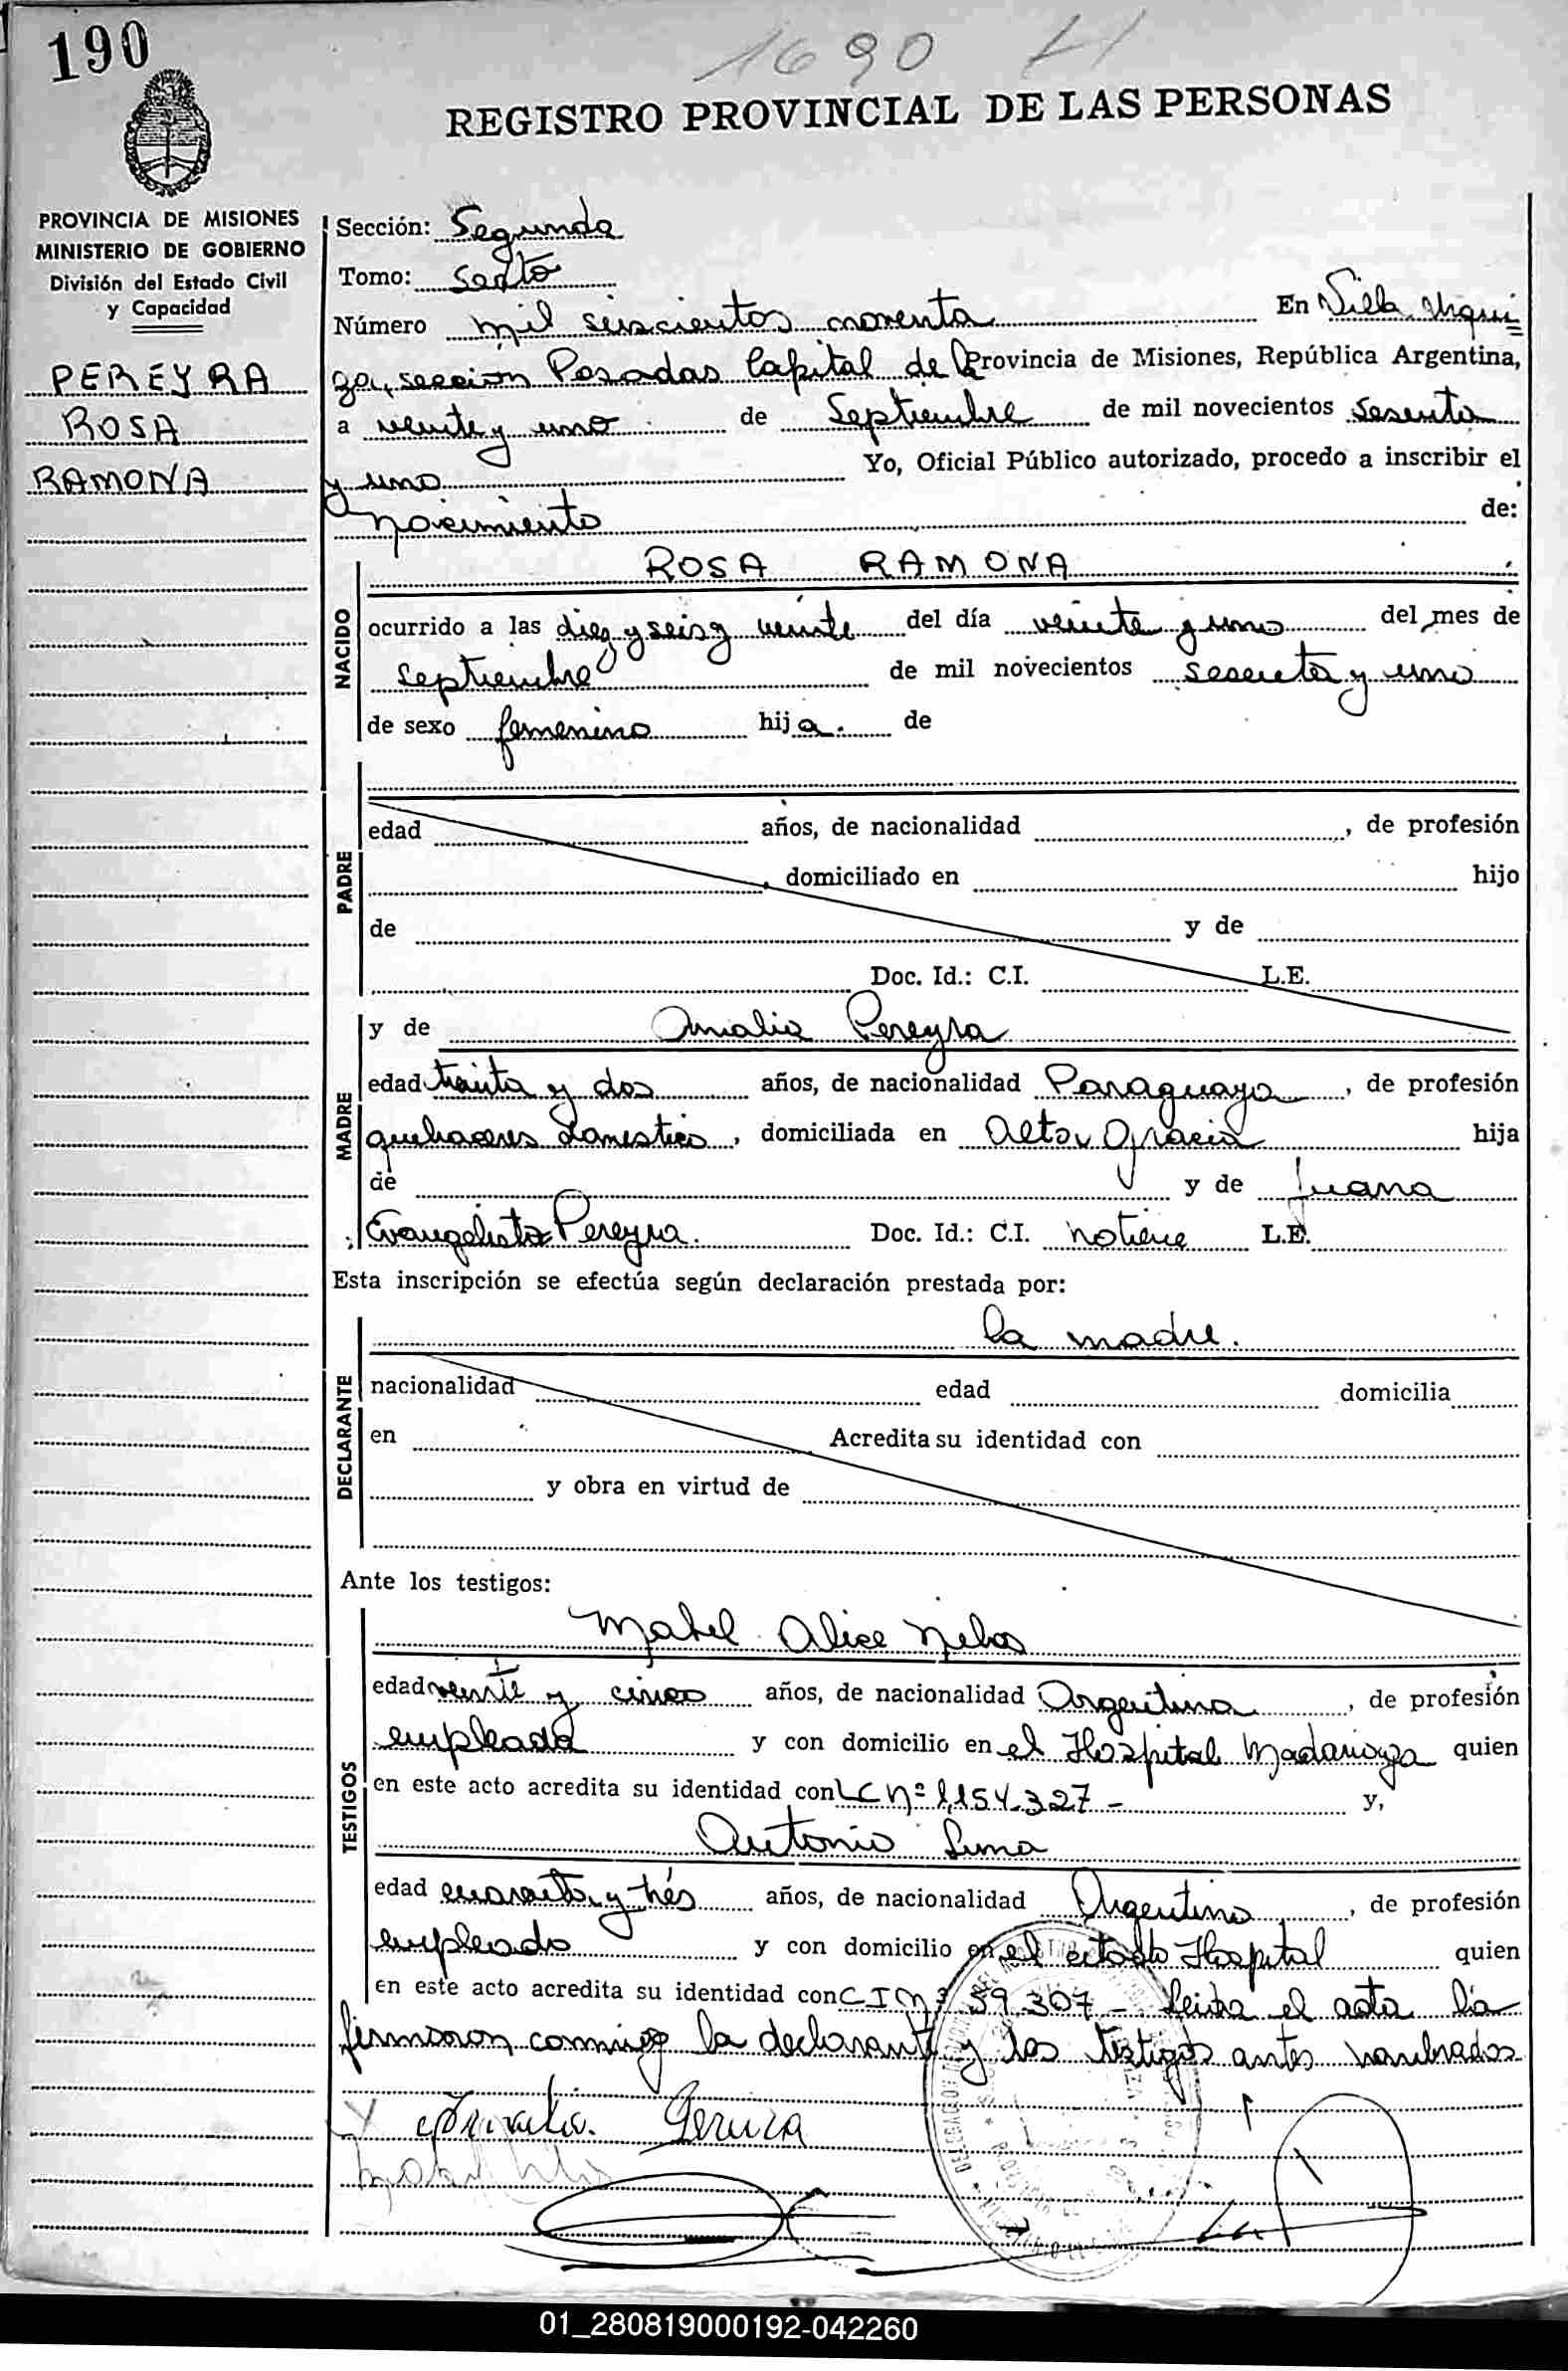 190
1690
REGISTRO PROVINCIAL DE LAS PERSONAS
PROVINCIA DE MISIONES
MINISTERIO DE GOBIERNO
División del Estado Civil
y Capacidad
PEREYRA
ROSA
RAMONA
Sección: Segunda
Tomo: Sexto
Número mil seiscientos noventa En Villa Urqui
za, sección Posadas Capital de la Provincia de Misiones, República Argentina,
a veinte y uno de Septiembre de mil novecientos sesenta
y uno Yo, Oficial Público autorizado, procedo a inscribir el
nacimiento de:
NACIDO
ROSA RAMONA
ocurrido a las diez y seis y veinte del día veinte y uno del mes de
septiembre de mil novecientos sesenta y uno
de sexo femenino hija de
PADRE
edad años, de nacionalidad , de profesión
, domiciliado en hijo
de y de
Doc. Id.: C.I. L.E.
MADRE
y de Amalia Pereyra
edad treinta y dos años, de nacionalidad Paraguaya, de profesión
quehaceres domestico, domiciliada en Alta Gracia hija
de y de Juana
Evangelista Pereyra. Doc. Id.: C.I. no tiene L.E.
Esta inscripción se efectúa según declaración prestada por:
DECLARANTE
la madre.
nacionalidad edad domicilia
en Acredita su identidad con
y obra en virtud de
Ante los testigos:
TESTIGOS
Mabel Alice
edad veinte y cinco años, de nacionalidad Argentina, de profesión
empleada y con domicilio en el Hospital Madariaga quien
en este acto acredita su identidad con LC Nº 1.154.327 - y,
Antonio Luna
edad cuarenta y trés años, de nacionalidad Argentino, de profesión
empleado y con domicilio en el citado Hospital quien
en este acto acredita su identidad con C I Nº 59.307 - leida el acta la
firmaron conmigo la declarante y los testigos antes nombrados
01_280819000192-042260